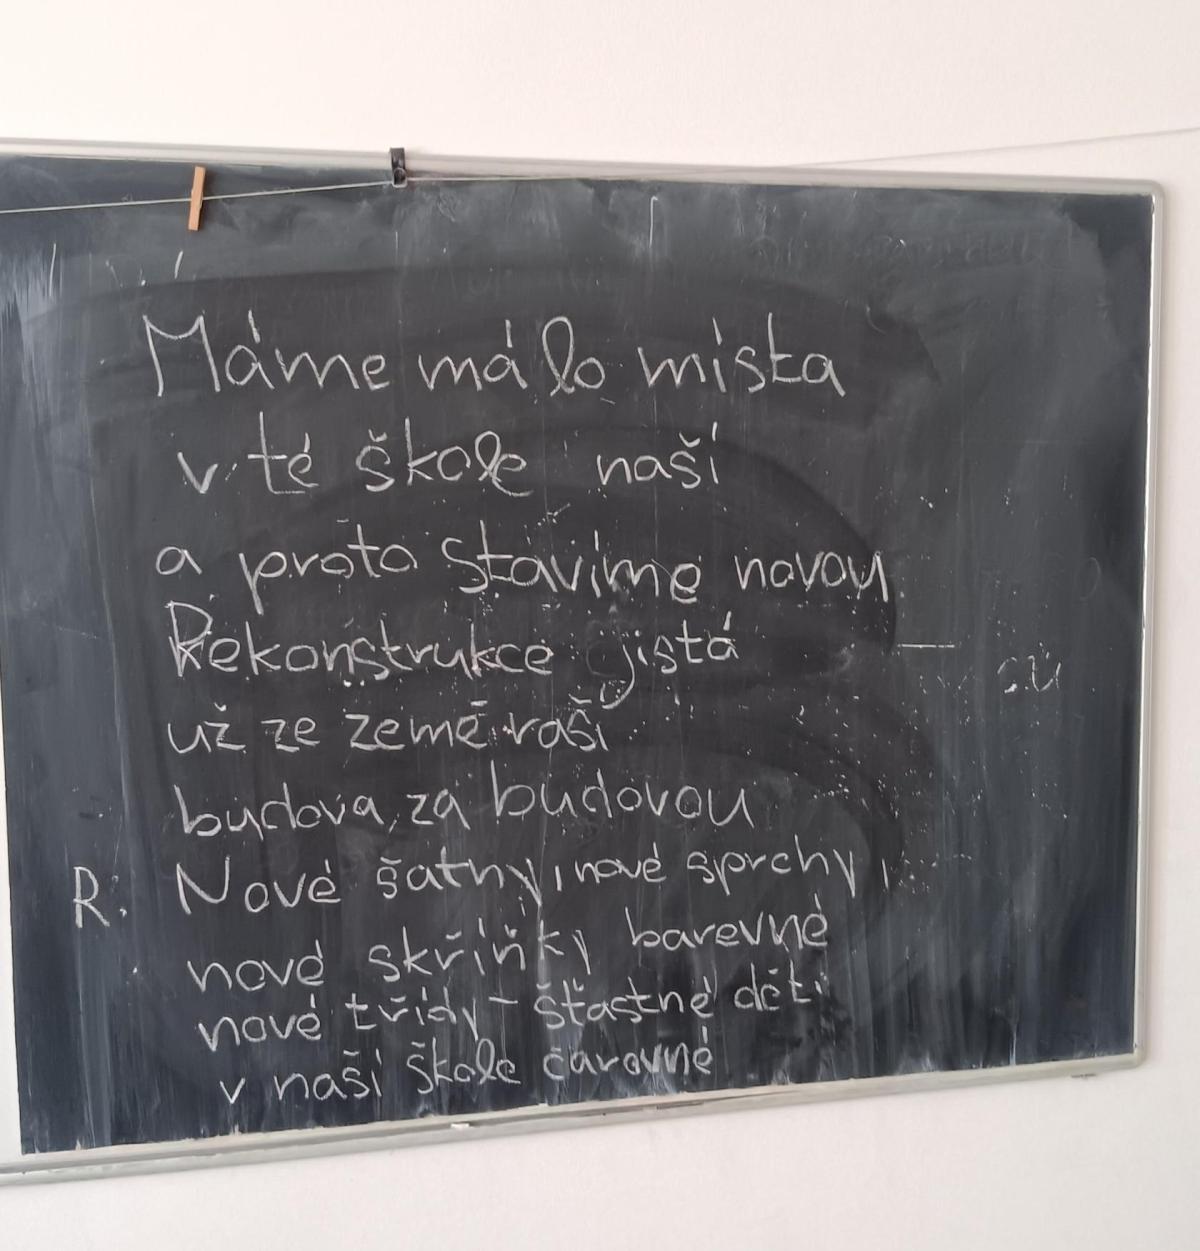 Máme málo místa
v té škole naší
a proto stavíme novou
Rekonstrukce jistá
už ze země raší
budova za budovou
R: Nové šatny, nové sprchy,
nové skříňky barevné
nové třídy - šťastné děti
v naší škole čarovné